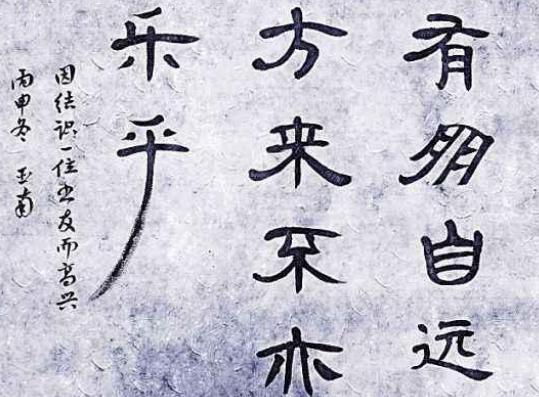 有朋自远
方来不亦
乐乎
因结识一位书友而高兴
丙申冬 玉南